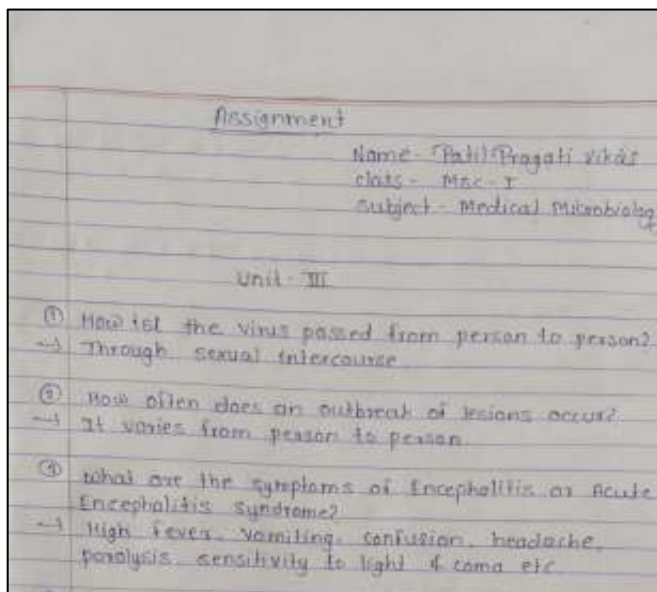 Assignment
Name - (Patil) Pragati Vikas
class - Msc - I
Subject - Medical Microbiology
Unit - III
① How is the virus passed from person to person?
→ Through sexual intercourse
② How often does an outbreak of lesions occur?
→ It varies from person to person
③ What are the symptoms of Encephalitis or Acute
Encephalitis syndrome?
→ High fever, vomiting, confusion, headache,
paralysis, sensitivity to light & coma etc.